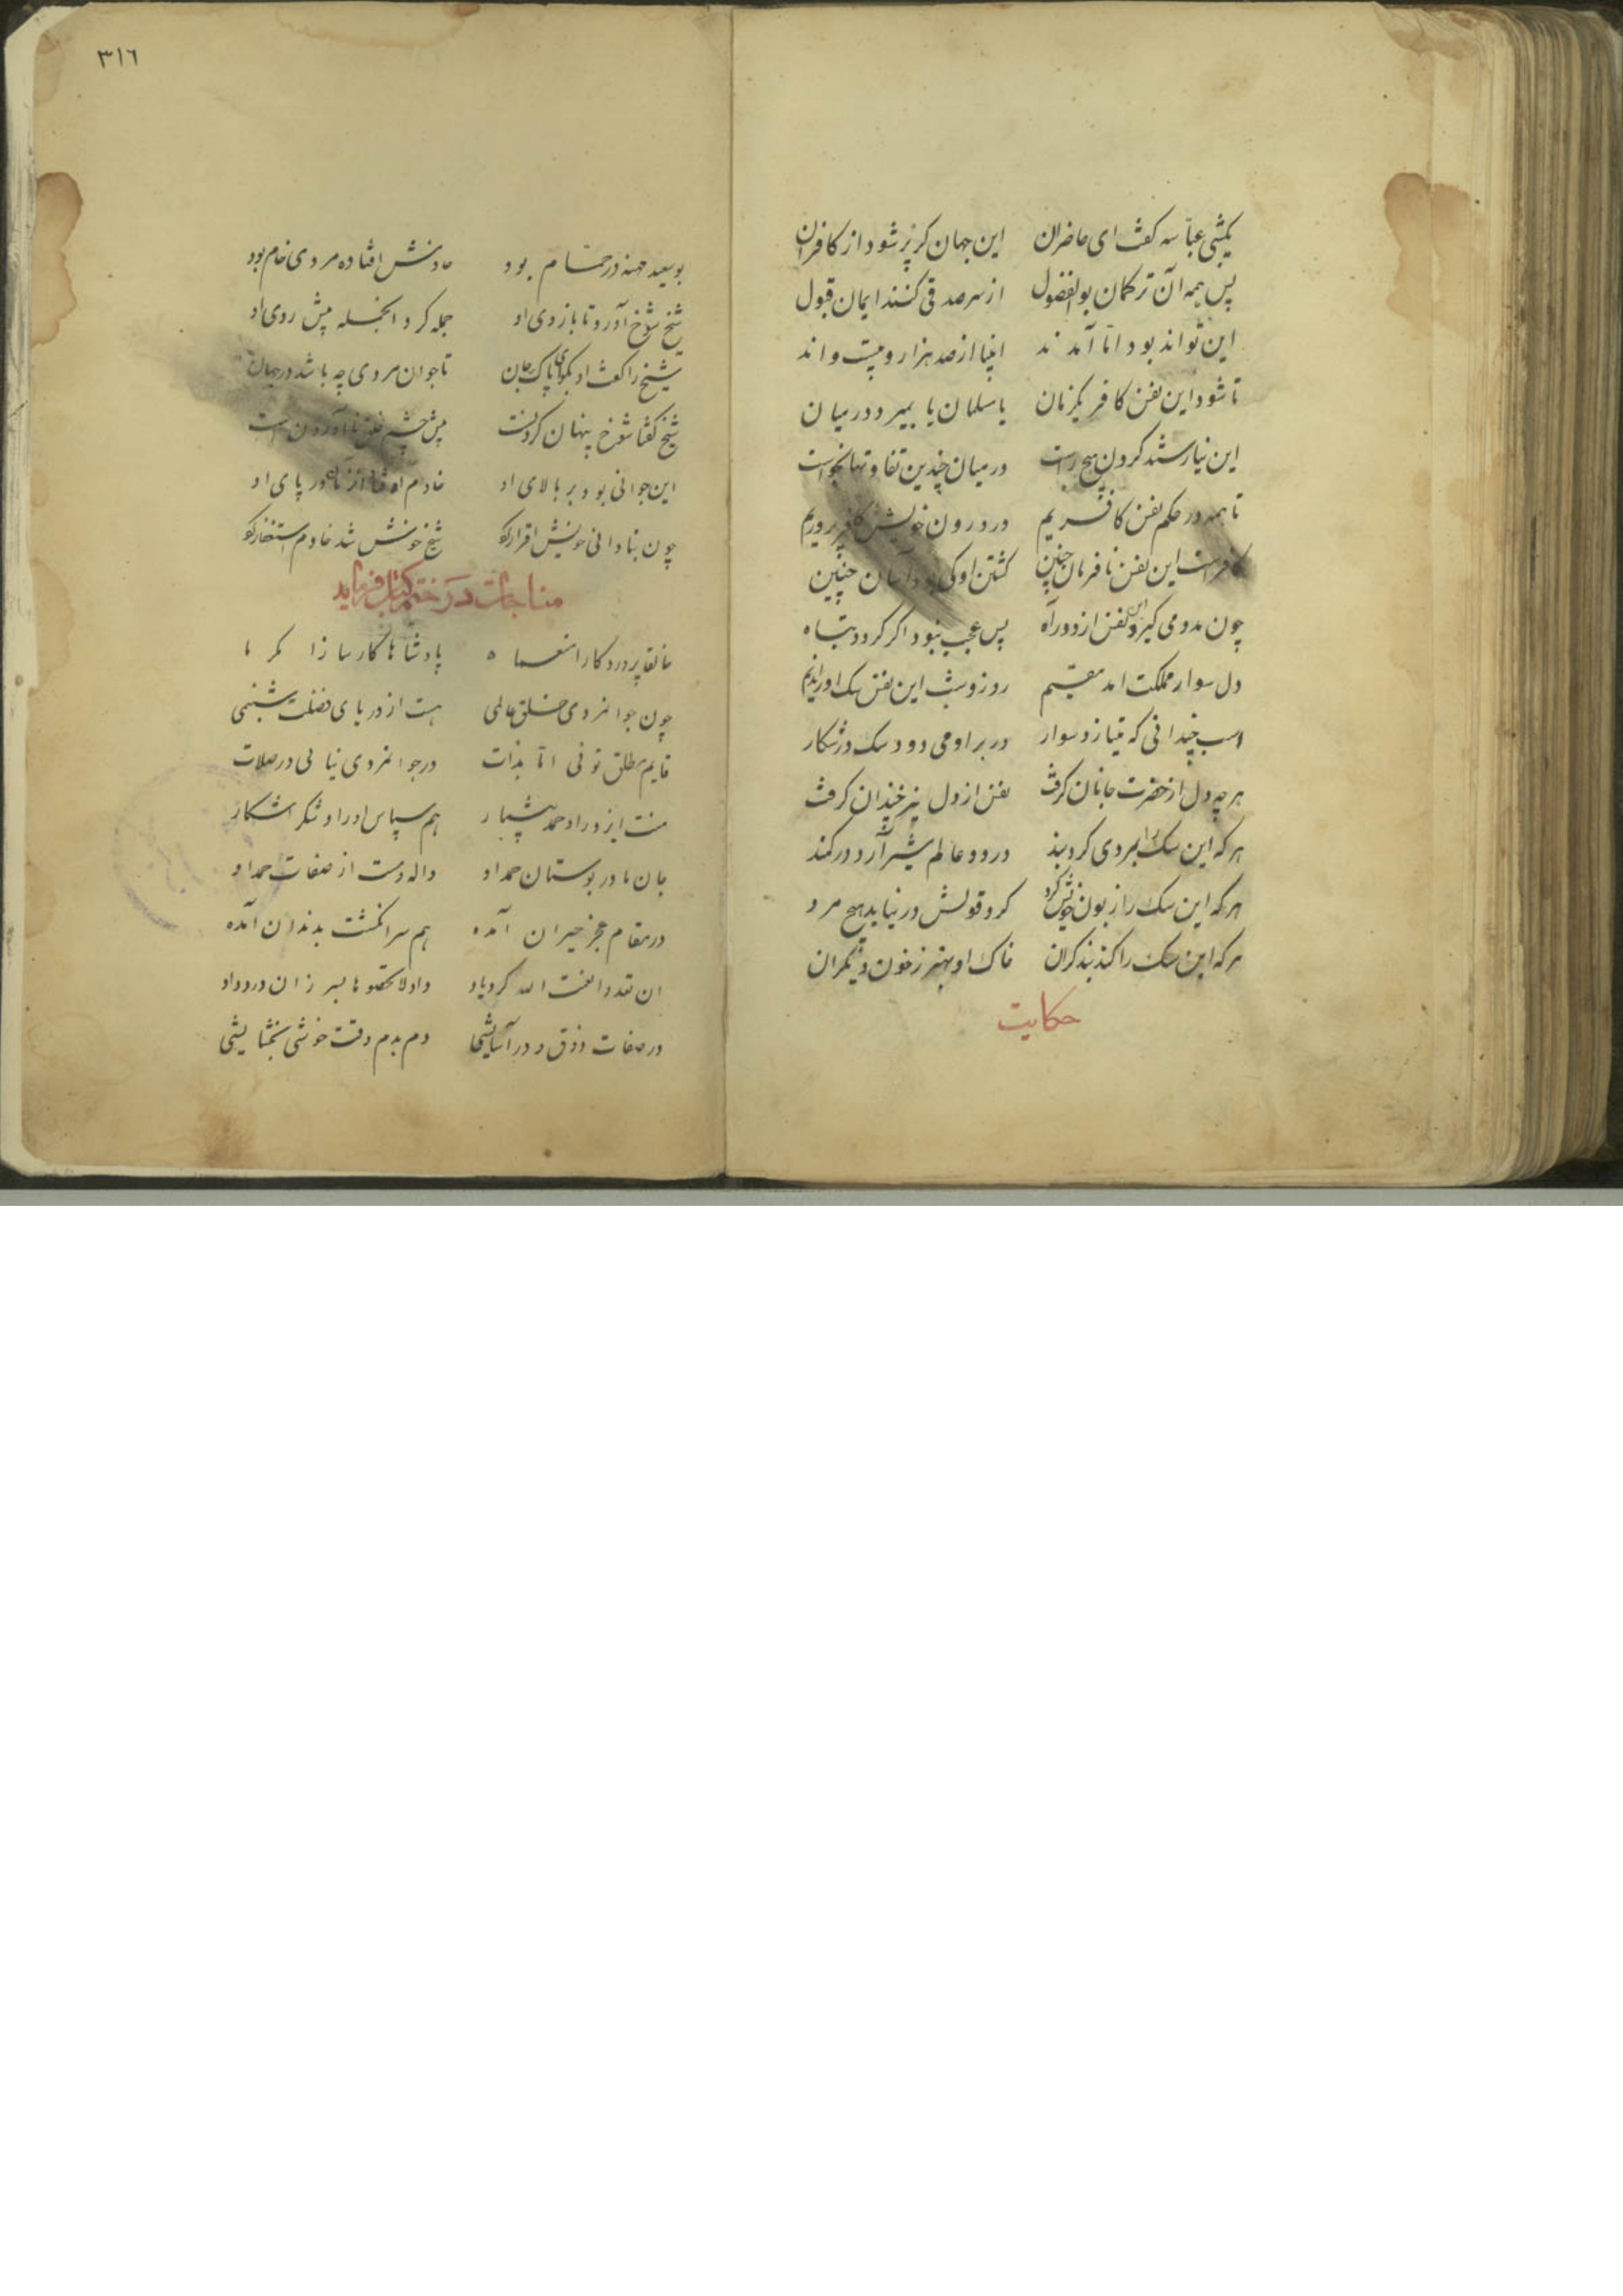 یکشبی عباسه گفت ای حاضران این جهان گر پر شود از کافران
پس همه آن ترکمان بوالفضول از سر صدقی کنند ایمان قبول
این تواند بود اما آمدند انبیا از صد هزار و بیست و اند
تا شود این نفس کافر یکزمان یا مسلمان یا بمیرد در میان
این نیارستند کردن هیچ راست در میان چندین تفاوتها نخواست
ما همه در حکم نفس کافریم در درون خویش کافر پروریم
کافرست این نفس نافرمان چنین کشتن او کی بود آسان چنین
چون مدد می گیرد این نفس از دو راه بس عجب نبود اگر گردد تباه
دل سوار مملکت آمد مقیم روز و شب این نفس سک او را ندیم
اسب چندانی که میتازد سوار در بر او می دود سک در شکار
هر چه دل از حضرت جانان گرفت نفس از دل نیز چندان گرفت
هر که این سک را بمردی کرد بند در دو عالم شیر آرد در کمند
هر که این سک را زبون خویش کرد گرد قولش در نیابد هیچ مرد
هر که این سک را کند بند گران خاک او بهتر ز خون دیگران
حکایت
٣١٦
بوسعید مهنه در حمام بود خادمش افتاده مردی خام بود
شیخ شوخ آورد تا بازوی او جمله کرد انجمله پیش روی او
شیخ را گفت او بگوی پاک جان تا جوان مردی چه باشد در جهان
شیخ گفتا شوخ پنهان کردنست پیش چشم خلق نا آوردن است
این جوابی بود بر بالای او خادم افتاد آن زمان در پای او
چون بنادانی خویش اقرار کرد شیخ خوش شد خادم استغفار کرد
مناجات در ختم کتاب فرماید
خالقا پروردگارا منعما پادشاها کارسازا مکرما
چون جوانمردی خلق عالمی هست از دریای فضلت شبنمی
قایم مطلق توئی اما بذات در جوانمردی نیائی در صفات
منت ایزد را و حمد بیشمار هم سپاس او را و شکر آشکار
جان ما در بوستان حمد او واله و مست از صفات حمد او
در مقام عجز حیران آمده هم سر انکشت بدندان آمده
ان تعدوا نعمت الله کرد یاد داد لا تحصوها بسر زان درد داد
در صفات ذوق و در آسایشی دم بدم وقت خوشی بخشایشی